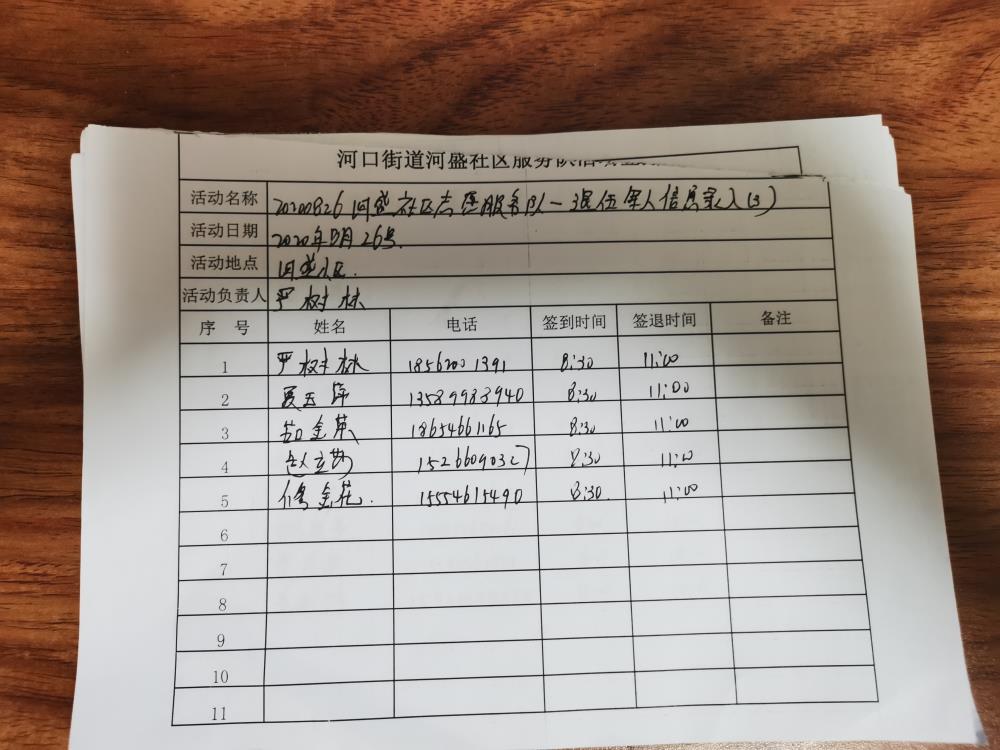 河口街道河盛社区服务队活动
活动名称 20200826河盛社区志愿服务队一退伍军人信息录入(3)
活动日期 2020年8月26号.
活动地点 河盛社区.
活动负责人 严树林
序 号 姓名 电话 签到时间 签退时间 备注
1 严树林 18562001391 8:30 11:00
2 13589983940 8:30 11:00
3 茹金英 18654661165 8:30 11:00
4 赵立莎 15266090327 8:30 11:00
5 修金花. 15554615490 8:30. 11:00
6
7
8
9
10
11